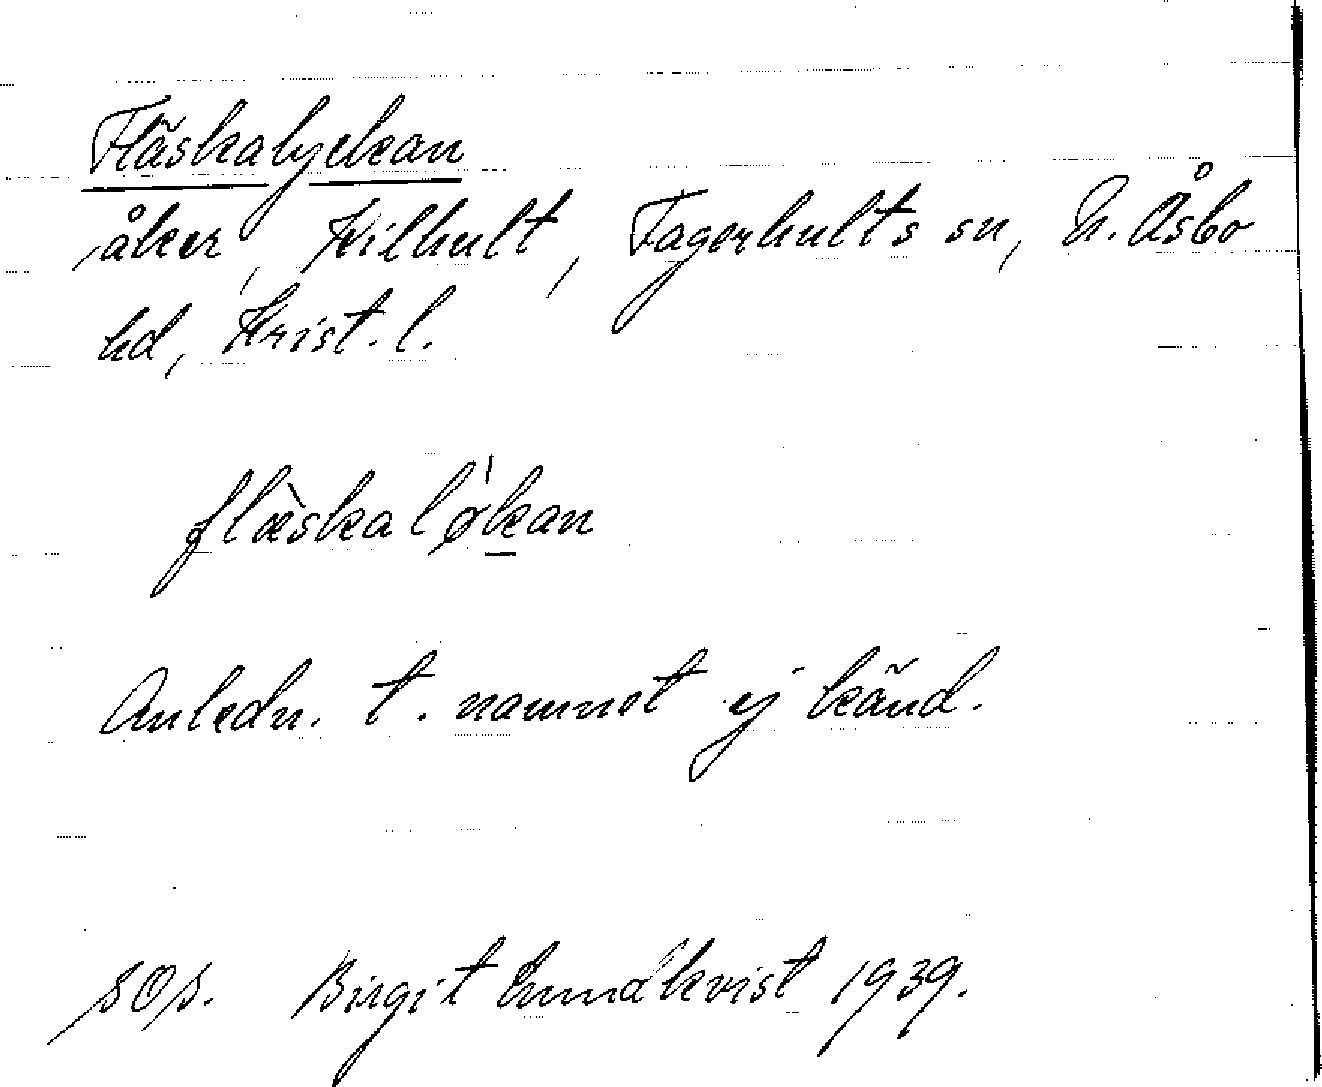 Fläskalyckan
åker, Kilhult, Fagerhults sn, N. Åsbo
hd, Krist. l.
flæ̀skaløˈkan
Anledn. t. namnet ej känd.
SOS. Birgit Lundkvist 1939.